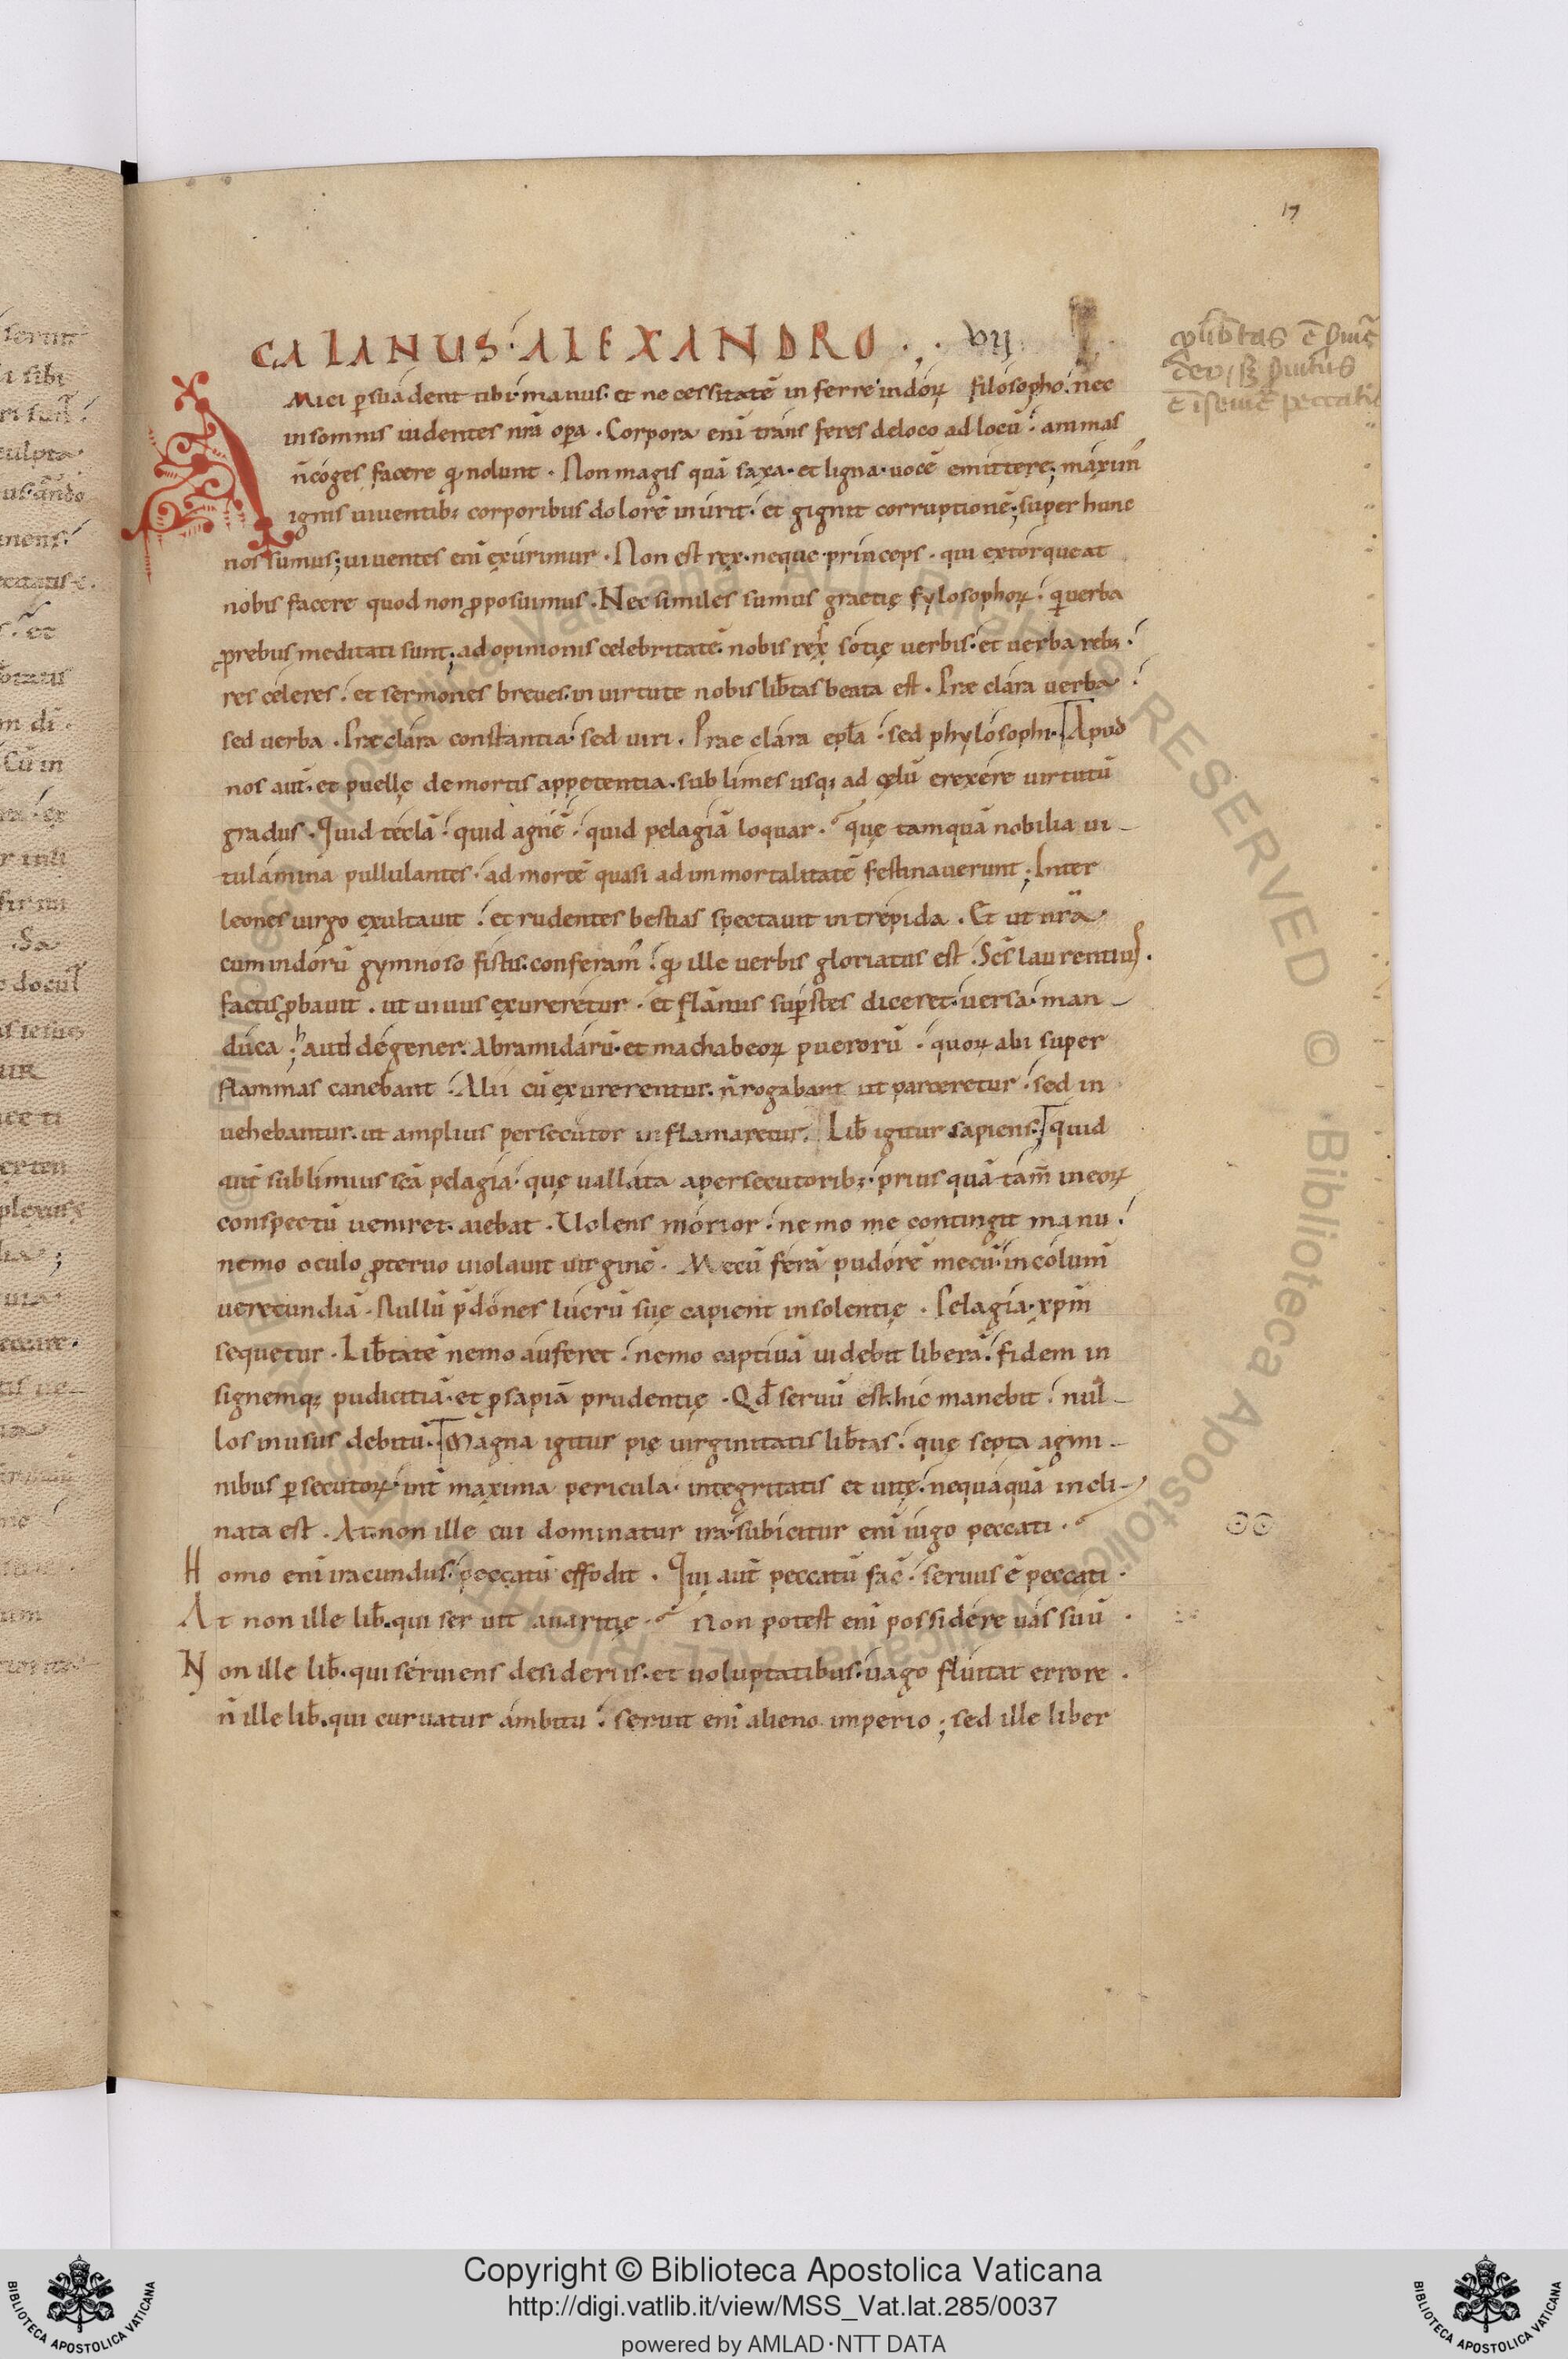 17
CALANUS · ALEXANDRO · , · VII
Amici p̱suadent tibi · manus · et necessitatē inferre indoꝝ filosopho · nec
insomnis uidentes nr̄a oꝑa · Corpora enī transferes deloco adlocū · animas
n̄ coges facere qđ nolunt · Non magis quā saxa · et ligna · uocē emittere; maxim̄
ignis uiuentib; corporibus dolorē inurit · et gignit corruptionē; super hunc
nos sumus; uiuentes enī exurimur · Non est rex · neque princeps · qui extorqueat
nobis facere quod non ꝓposuimus · Nec similes sumus graecię fylosophoꝝ · q̇ uerba
ꝓ rebus meditati sunt; ad opinionis celebritatē · nobis res sotię uerbis · et uerba reb; ·
res celeres · et sermones breues · in uirtute nobis lib̄tas beata est · Prae clara uerba ·
sed uerba · Prae clara constantia · sed uiri · Prae clara epła · sed phylosophi · Apud
nos aut̄ · et puellę de mortis appetentia · sublimes usq; ad cęlū erexere uirtutū
gradus · Quid teclā · quid agnē · quid pelagiā loquar · quę tamquā nobilia ui-
tulamina pullulantes · ad mortē quasi ad inmortalitatē festinauerunt; Inter
leones uirgo exultauit · et rudentes bestias spectauit intrepida · Et ut nr̄a
cum indorū gymnosofistis · conferam̄ · qđ ille uerbis gloriatus est · Scs̄ laurentius ·
factis ꝓbauit · ut uiuus exureretur · et flāmis sup̱stes diceret · uersa · man-
duca; haud degener · Abramidarū · et machabeoꝝ puerorū · quoꝝ alii super
flammas canebant · Alii cū exurerentur · n̄ rogabant ut parceretur · sed in
uehebantur · ut amplius persecutor inflamaretur · Lib̄ igitur sapiens · quid
aut̄ sublimius sc̄a pelagia · quę uallata a persecutorib; · prius quā tam̄ in eoꝝ
conspectū ueniret · aiebat · Uolens morior · nemo me contingit manu ·
nemo oculo ꝓteruo uiolauit uirginē · Mecū ferā pudorē mecū · incolum̄
uerecundiā · Nullū p̄dones lucrū suę capient insolentię · Pelagia · xp̄m
sequetur · Lib̄tatē nemo auferet · nemo captiuā uidebit liberā · fidem in
signemq; pudicitiā · et ꝓsapiā prudentię · Qđ seruū est · hic manebit · nul-
los in usus debitū · Magna igitur pię uirginitatis lib̄tas · quę septa agmi-
nibus p̱secutoꝝ · int̄ maxima pericula · integritatis et uitę · nequaquā incli-
nata est · At non ille cui dominatur ira · subicitur enī iugo peccati ·
Homo enī iracundus · peccatū effodit · Qui aut̄ peccatū fac̄ · seruus ē peccati ·
At non ille lib̄ · qui seruit auaritię · Non potest enī possidere uas suū ·
Non ille lib̄ · qui seruiens desideriis · et uoluptatibus · uago fluitat errore ·
n̄ ille lib̄ · qui curuatur ambitu · seruit enī alieno imperio; sed ille liber
Copyright © Biblioteca Apostolica Vaticana
http://digi.vatlib.it/view/MSS_Vat.lat.285/0037
powered by AMLAD·NTT DATA
BIBLIOTECA APOSTOLICA VATICANA
BIBLIOTECA APOSTOLICA VATICANA